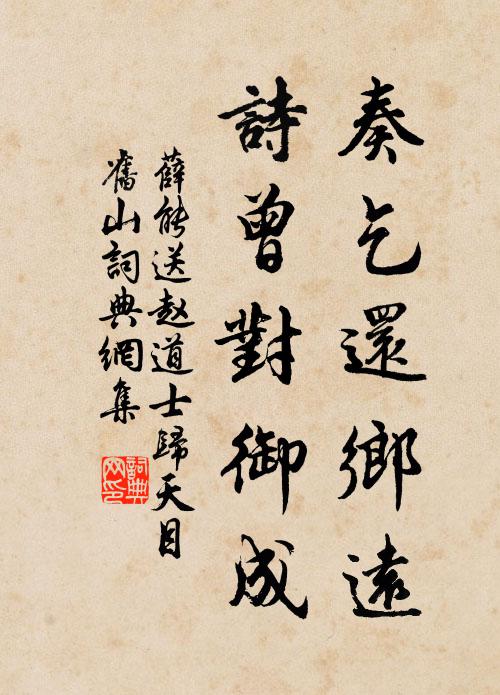 奏乞還鄉遠
詩曾對御成
薛能送赵道士歸天目
舊山詞典網集
詞典網印